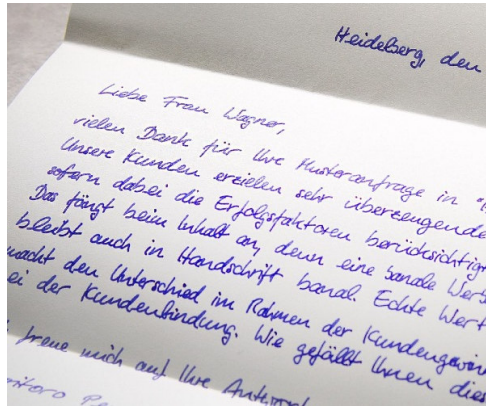 Heidelberg, den
Liebe Frau Wagner,
vielen Dank für Ihre Musteranfrage in
Unsere Kunden erzielen sehr überzeugende
sofern dabei die Erfolgsfaktoren berücksichtigt
Das fängt beim Inhalt an, denn eine banale
bleibt auch in Handschrift banal. Echte Wert
macht den Unterschied im Rahmen der
ei der Kundenbindung. Wie gefällt Ihnen dies
freue mich auf Ihre